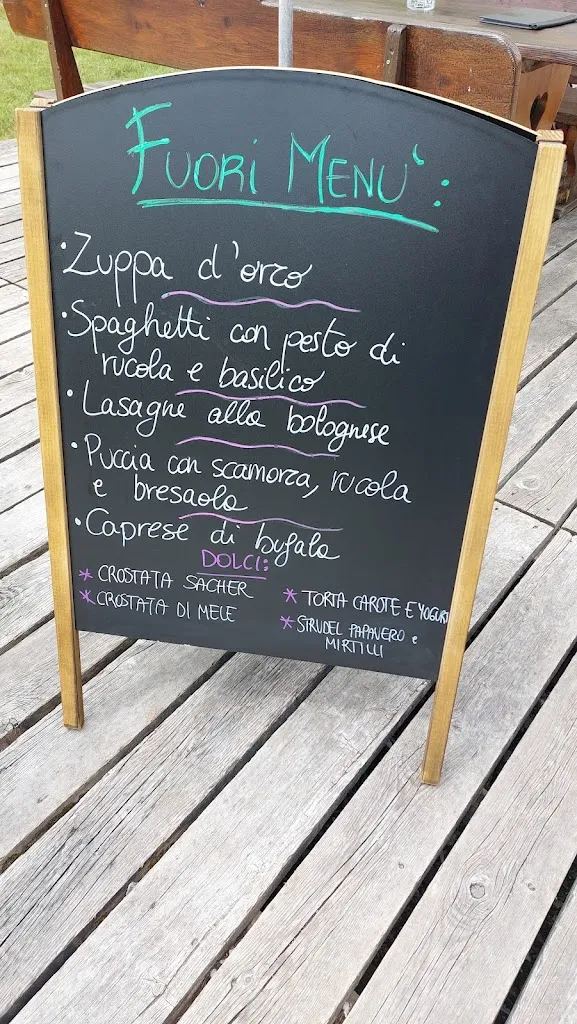 FUORI MENU':
• Zuppa d'orzo
• Spaghetti con pesto di
rucola e basilico
• Lasagne alla bolognese
• Puccia con scamorza, rucola
e bresaola
• Caprese di bufala
DOLCI:
* CROSTATA SACHER
* CROSTATA DI MELE
* TORTA CAROTE E YOGURT
* STRUDEL PAPAVERO e
MIRTILLI